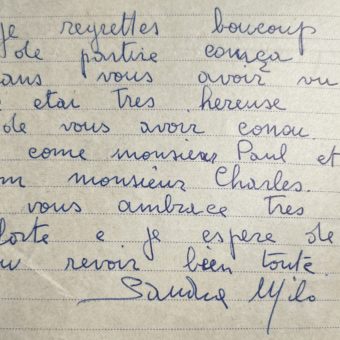 je regrettes boucoup
de partire comça
sans vous avoir vu
etai tres hereuse
de vous avoir conou
come monsieur Paul et
monsieur Charles.
vous ambrace tres
forte e je espere de
revoir bien touté.
Sandra Milo